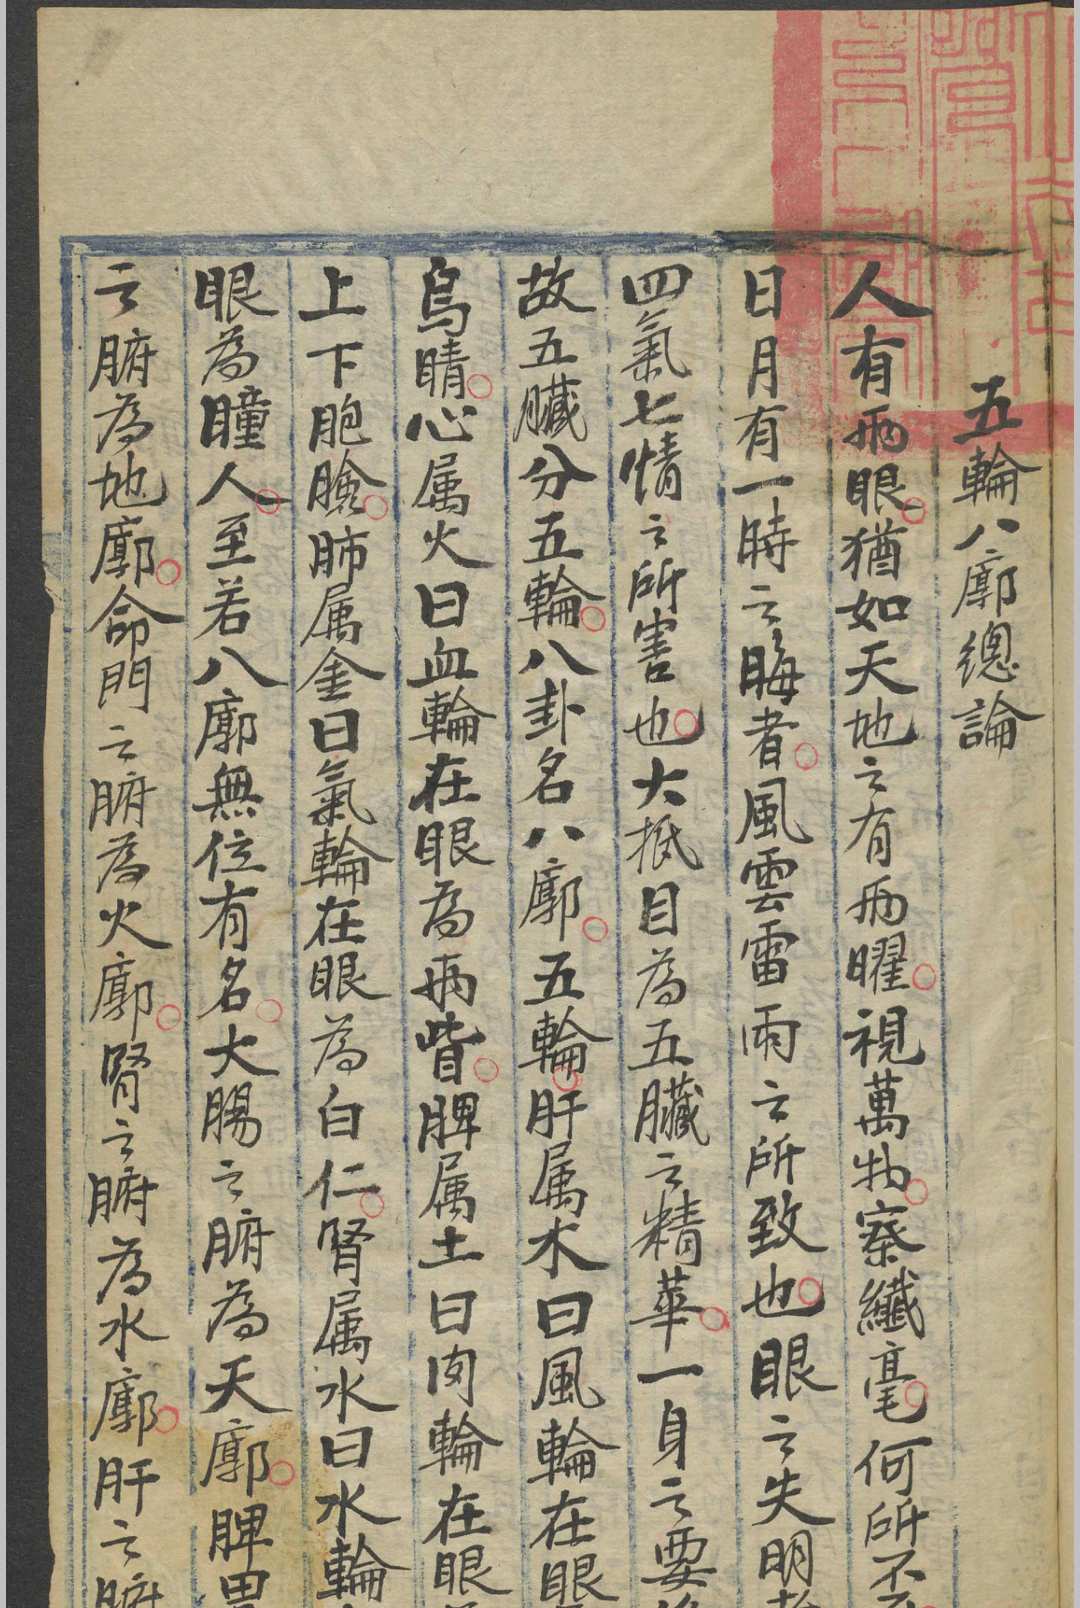 五輪八廓總論
人有兩眼猶如天地之有兩曜視萬物察纖毫何所不
日月有一時之晦者風雲雷雨之所致也眼之失明者
四氣七情之所害也大抵目為五臟之精華一身之要
故五臟分五輪八卦名八廓五輪肝属木曰風輪在眼
烏睛心属火曰血輪在眼為兩眥脾属土曰肉輪在眼
上下胞瞼肺属金曰氣輪在眼為白仁腎属水曰水輪
眼為瞳人至若八廓無位有名大腸之腑為天廓脾胃
之腑為地廓命門之腑為火廓腎之腑為水廓肝之腑